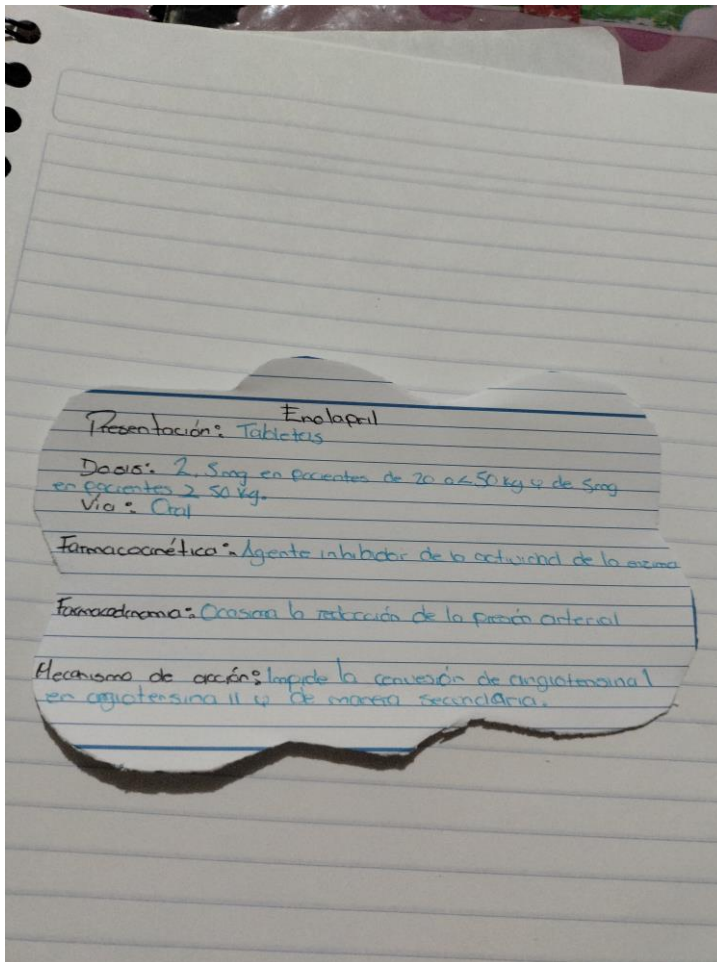 Enalapril
Presentación: Tabletas
Dosis: 2.5mg en pacientes de 20 a < 50 kg y de 5mg
en pacientes ≥ 50 kg.
Vía: Oral
Farmacocinética: Agente inhibidor de la actividad de la enzima
Farmacodinamia: Ocasiona la reducción de la presión arterial
Mecanismo de acción: Impide la conversión de angiotensina I
en angiotensina II y de manera secundaria.